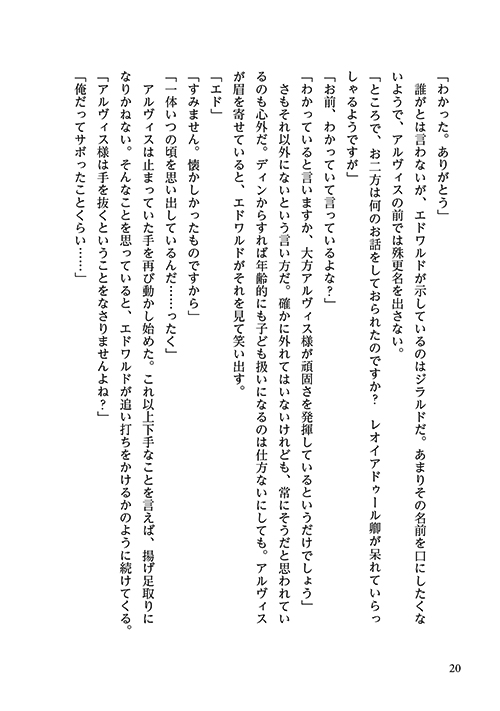 「わかった。ありがとう」
　誰がとは言わないが、エドワルドが示しているのはジラルドだ。あまりその名前を口にしたくな
いようで、アルヴィスの前では殊更名を出さない。
「ところで、お二方は何のお話をしておられたのですか？　レオイアドゥール卿が呆れていらっ
しゃるようですが」
「お前、わかっていて言っているよな？」
「わかっていると言いますか、大方アルヴィス様が頑固さを発揮しているというだけでしょう」
　さもそれ以外にないという言い方だ。確かに外れてはいないけれども、常にそうだと思われてい
るのも心外だ。ディンからすれば年齢的にも子ども扱いになるのは仕方ないにしても。アルヴィス
が眉を寄せていると、エドワルドがそれを見て笑い出す。
「エド」
「すみません。懐かしかったものですから」
「一体いつの頃を思い出しているんだ……ったく」
　アルヴィスは止まっていた手を再び動かし始めた。これ以上下手なことを言えば、揚げ足取りに
なりかねない。そんなことを思っていると、エドワルドが追い打ちをかけるかのように続けてくる。
「アルヴィス様は手を抜くということをなさりませんよね？」
「俺だってサボったことくらい……」
20